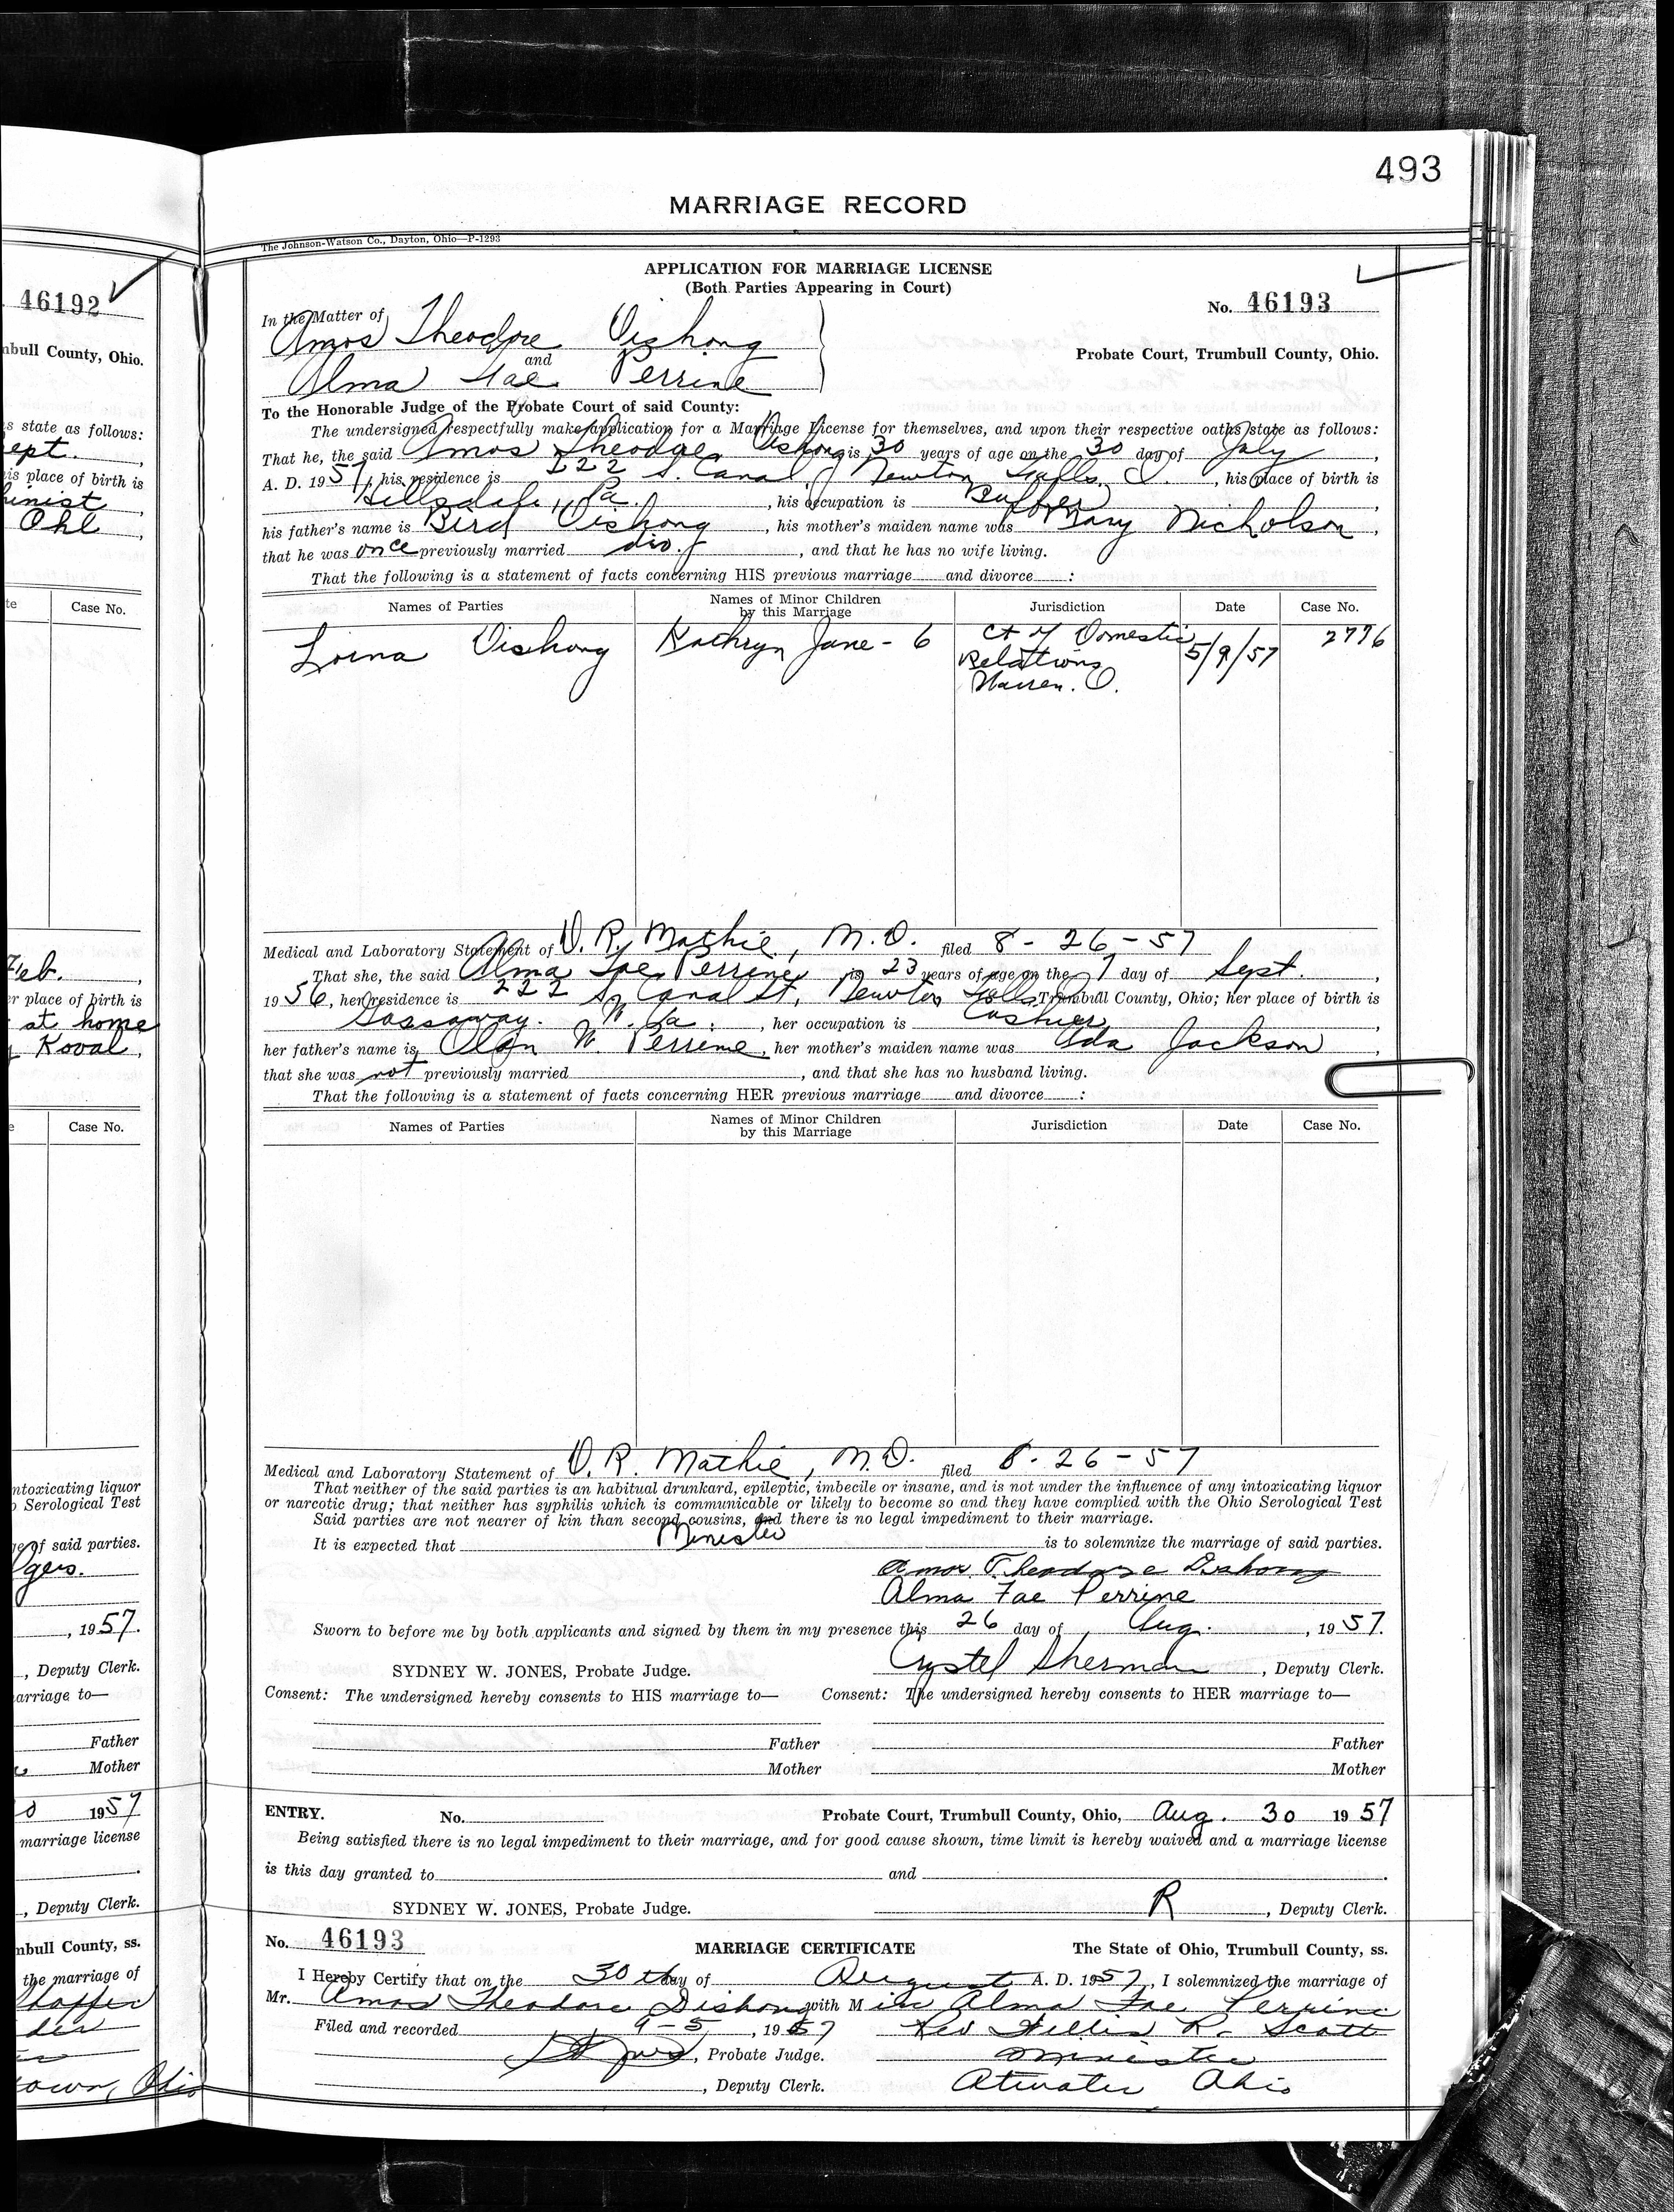 493
MARRIAGE RECORD
The Johnson-Watson Co., Dayton, Ohio—P-1293
APPLICATION FOR MARRIAGE LICENSE
(Both Parties Appearing in Court)
In the Matter of
No. 46193
Amos Theodore Dishong
and
Probate Court, Trumbull County, Ohio.
Alma Fae Perrine
To the Honorable Judge of the Probate Court of said County:
The undersigned respectfully make application for a Marriage License for themselves, and upon their respective oaths state as follows:
That he, the said Amos Theodore Dishong is 30 years of age on the 30 day of July,
A. D. 1957, his residence is 222 S. Canal, Newton Falls, O., his place of birth is
Hillsdale, Pa., his occupation is Buffer,
his father's name is Bird Dishong, his mother's maiden name was Mary Nicholson,
that he was once previously married div., and that he has no wife living.
That the following is a statement of facts concerning HIS previous marriage and divorce :
Names of Parties Names of Minor Children by this Marriage Jurisdiction Date Case No.
Lorna Dishong Kathryn Jane - 6 Ct of Domestic Relations Warren. O. 5/9/57 2776
Medical and Laboratory Statement of D. R. Mathie, M.D. filed 8-26-57
That she, the said Alma Fae Perrine is 23 years of age on the 7 day of Sept.,
1956, her residence is 222 So Canal St, Newton Falls Trumbull County, Ohio; her place of birth is
Gassaway. W. Va., her occupation is Cashier,
her father's name is Olan W. Perrine, her mother's maiden name was Ada Jackson,
that she was not previously married, and that she has no husband living.
That the following is a statement of facts concerning HER previous marriage and divorce :
Names of Parties Names of Minor Children by this Marriage Jurisdiction Date Case No.
Medical and Laboratory Statement of D. R. Mathie, M.D. filed 8-26-57
That neither of the said parties is an habitual drunkard, epileptic, imbecile or insane, and is not under the influence of any intoxicating liquor
or narcotic drug; that neither has syphilis which is communicable or likely to become so and they have complied with the Ohio Serological Test
Said parties are not nearer of kin than second cousins, and there is no legal impediment to their marriage.
It is expected that Minister is to solemnize the marriage of said parties.
Amos Theodore Dishong
Alma Fae Perrine
Sworn to before me by both applicants and signed by them in my presence this 26 day of Aug., 1957.
SYDNEY W. JONES, Probate Judge. Crystel Sherman, Deputy Clerk.
Consent: The undersigned hereby consents to HIS marriage to— Consent: The undersigned hereby consents to HER marriage to—
Father Father
Mother Mother
ENTRY. No. Probate Court, Trumbull County, Ohio, Aug. 30 1957
Being satisfied there is no legal impediment to their marriage, and for good cause shown, time limit is hereby waived and a marriage license
is this day granted to and .
SYDNEY W. JONES, Probate Judge. R, Deputy Clerk.
No. 46193 MARRIAGE CERTIFICATE The State of Ohio, Trumbull County, ss.
I Hereby Certify that on the 30th day of August A. D. 1957, I solemnized the marriage of
Mr. Amos Theodore Dishong with Miss Alma Fae Perrine
Filed and recorded 9-5, 1957 Rev R. Scott
, Probate Judge. Minister
, Deputy Clerk. Atwater Ohio
46192
mbull County, Ohio.
s state as follows:
ept.,
is place of birth is
Ohl,
te Case No.
Feb.,
r place of birth is
at home
Koval,
e Case No.
ntoxicating liquor
Serological Test
ge of said parties.
gers.
, 1957.
, Deputy Clerk.
arriage to—
Father
Mother
0 1957
marriage license
, Deputy Clerk.
mbull County, ss.
the marriage of
town, Ohio